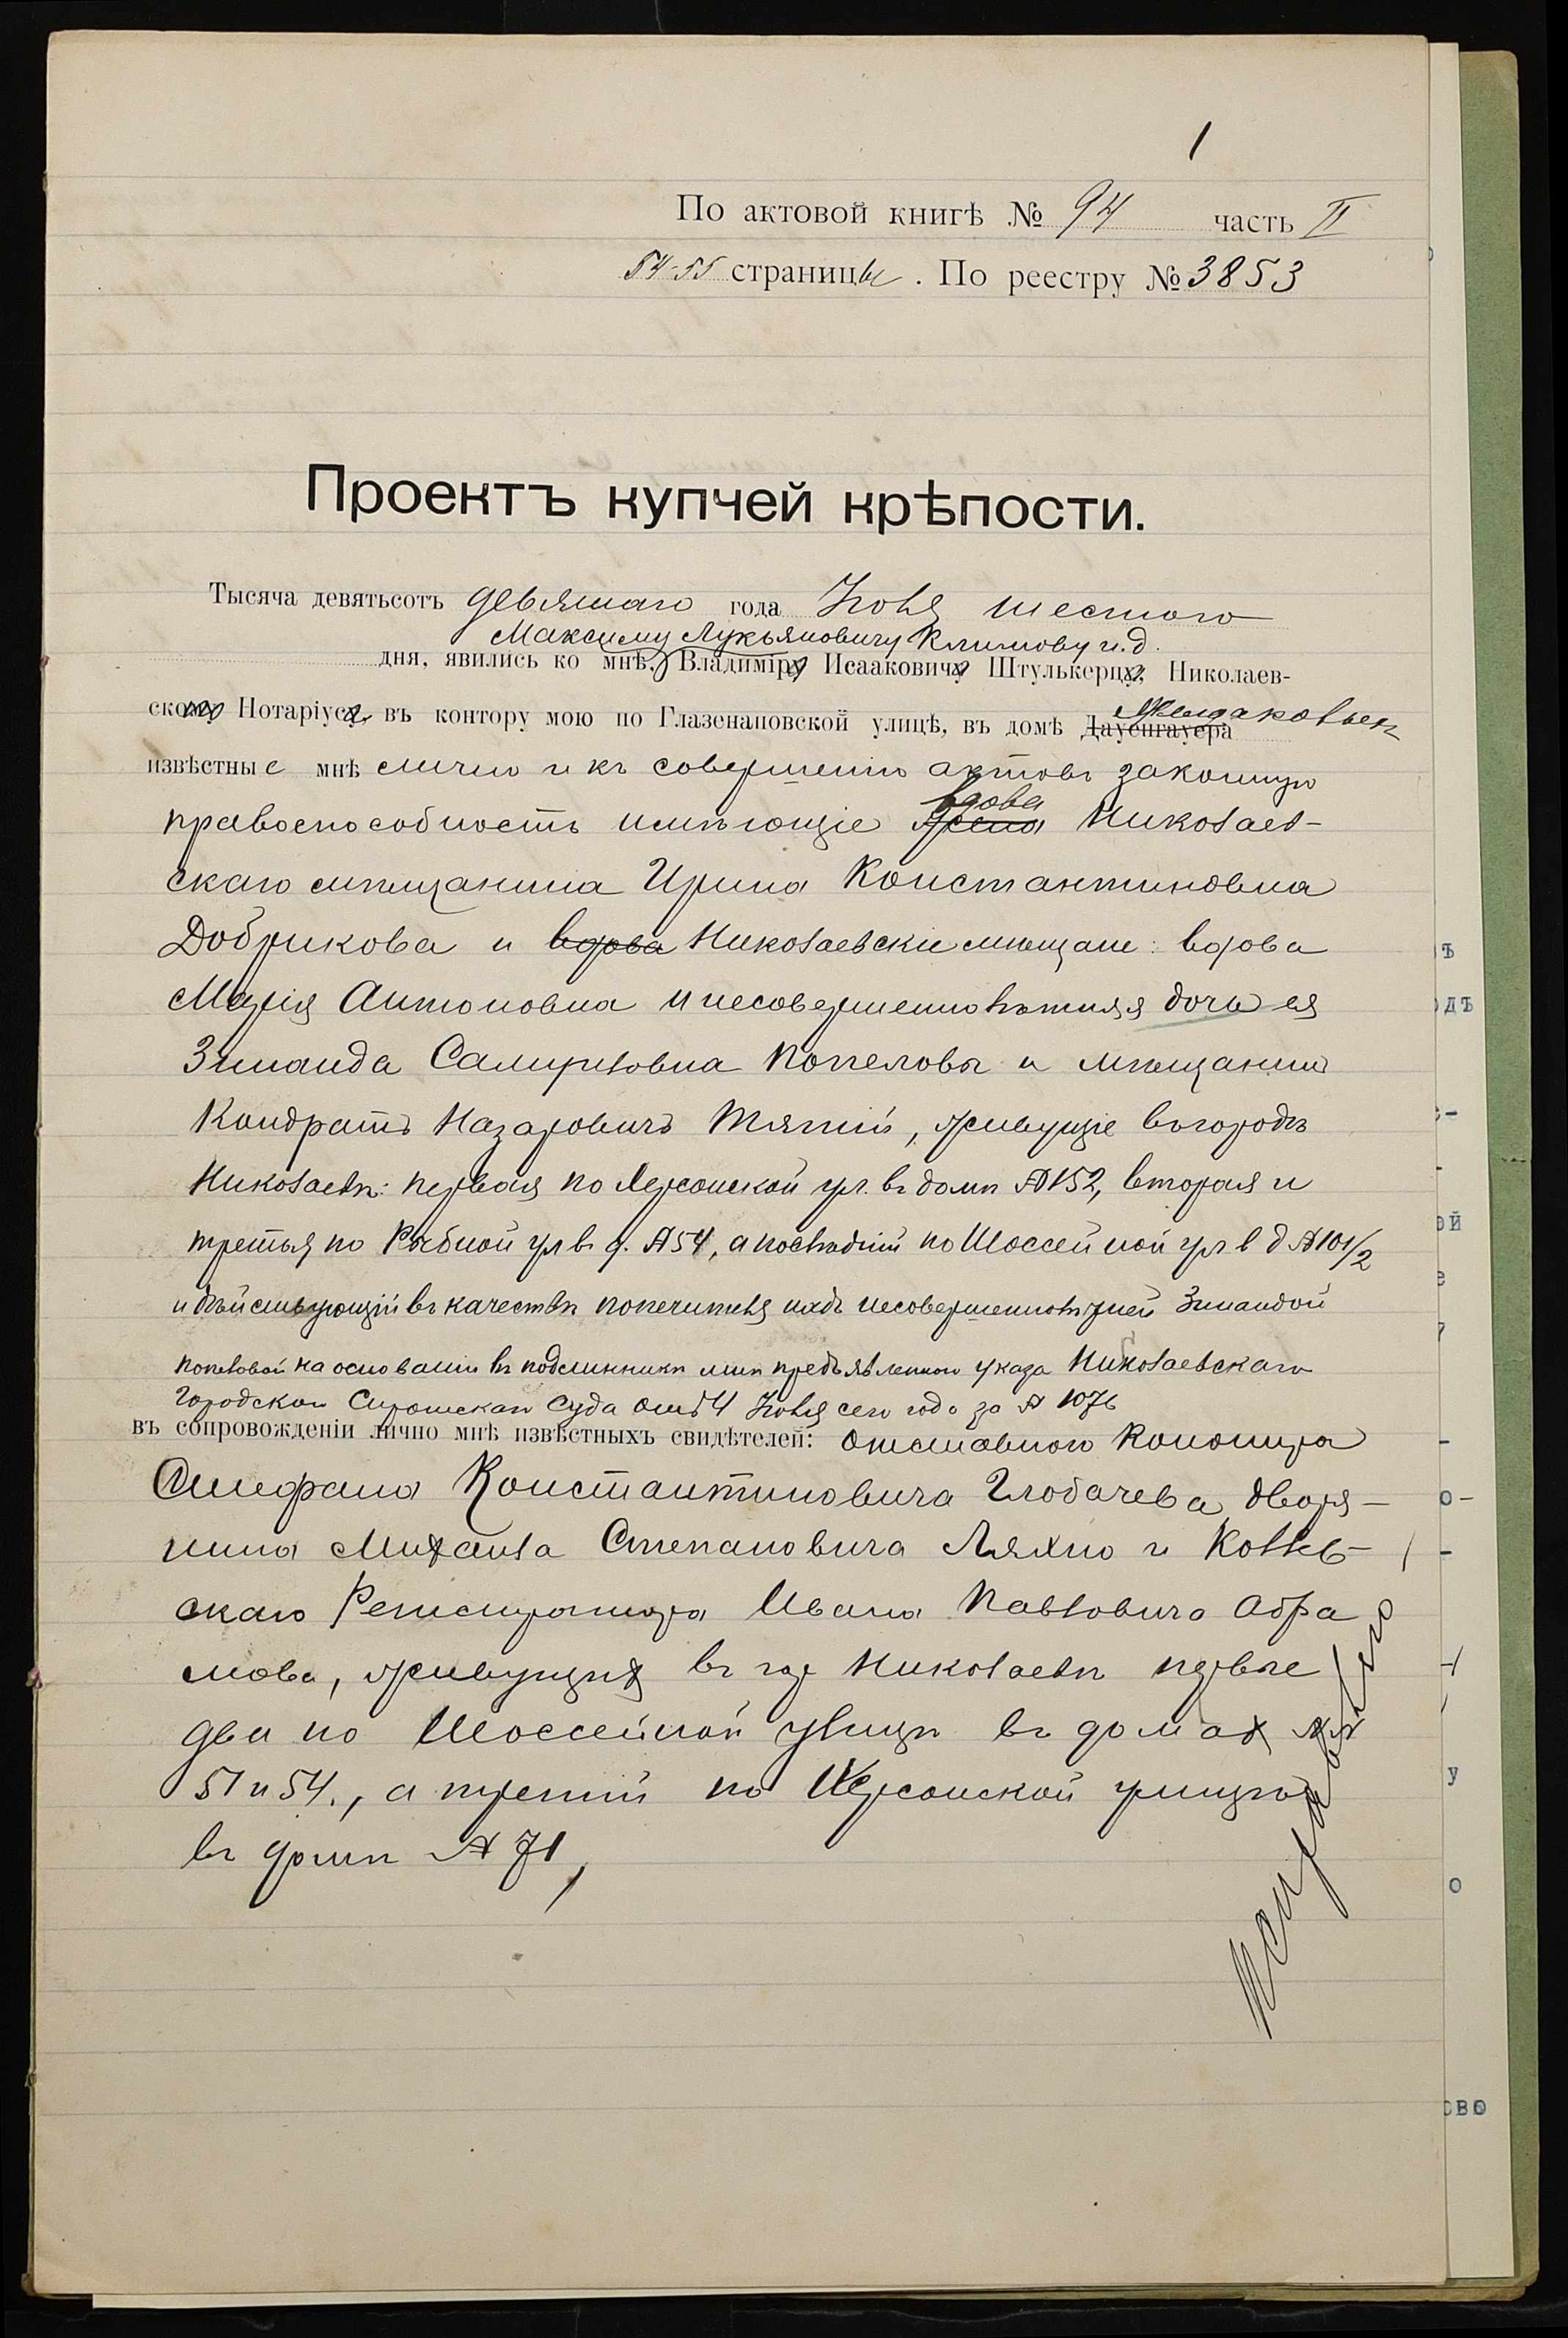 1
По актовой книгѣ № 94 часть II
54-55 страницы. По реестру № 3853
Проектъ купчей крѣпости.
Тысяча девятьсотъ девятаго года Іюня шестого
Максиму Лукьяновичу Климову и.д.
дня, явились ко мнѣ, Владиміра Исааковича Штулькерца, Николаев-
скаго Нотаріуса, въ контору мою по Глазенаповской улицѣ, въ домѣ Даценгауера
извѣстные мнѣ лично и къ совершенію актовъ законную
вдова
правоспособность имѣющіе жена Николаев-
скаго мѣщанина Ирина Константиновна
Добрикова и вдова Николаевскіе мѣщане: вдова
Марія Антоновна и несовершеннолѣтняя дочь ея
Зинаида Самуиловна Попеловы и мѣщанинъ
Кондратъ Назаровичъ Тягній, живущіе въ городѣ
Николаевѣ: первая по Херсонской ул. въ домѣ №152, вторая и
третья по Рыбной ул въ д. №54, а послѣдній по Шоссейной ул в д №101/2
и дѣйствующій въ качествѣ попечителя надъ несовершеннолѣтней Зинаидой
Попеловой на основаніи въ подлинникѣ мнѣ предъявленнаго указа Николаевскаго
Городского Сиротскаго Суда отъ 4 Іюня сего года за № 1076
въ сопровожденіи лично мнѣ извѣстныхъ свидѣтелей: отставного Канонира
Стефана Константиновича Глобачева дворя-
нина Михаила Степановича Ляхно и Коллеж-
скаго Регистратора Ивана Павловича Абра
мова, живущихъ въ гор Николаевѣ первые
два по Шоссейной улицѣ въ домах №№
51 и 54., а третій по Херсонской улицѣ
въ домѣ № 71,